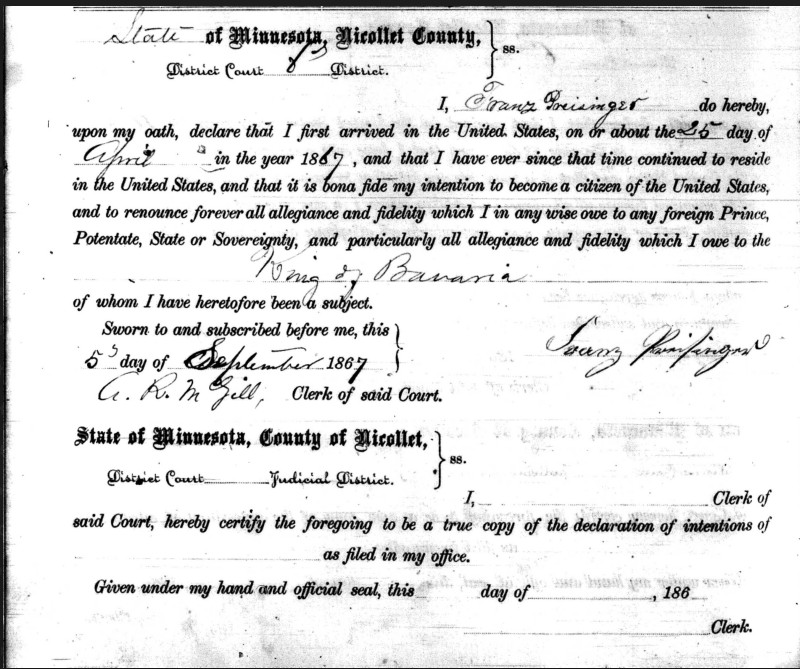 State of Minnesota, Nicollet County,
District Court 8th District. } ss.
I, Franz Preisinger do hereby,
upon my oath, declare that I first arrived in the United States, on or about the 25 day of
April in the year 1867, and that I have ever since that time continued to reside
in the United States, and that it is bona fide my intention to become a citizen of the United States,
and to renounce forever all allegiance and fidelity which I in any wise owe to any foreign Prince,
Potentate, State or Sovereignty, and particularly all allegiance and fidelity which I owe to the
King of Bavaria
of whom I have heretofore been a subject.
Sworn to and subscribed before me, this
5th day of September 1867
Franz Preisinger
A. R. McGill, Clerk of said Court.
State of Minnesota, County of Nicollet,
District Court Judicial District. } ss.
I, Clerk of
said Court, hereby certify the foregoing to be a true copy of the declaration of intentions of
as filed in my office.
Given under my hand and official seal, this day of , 186
Clerk.